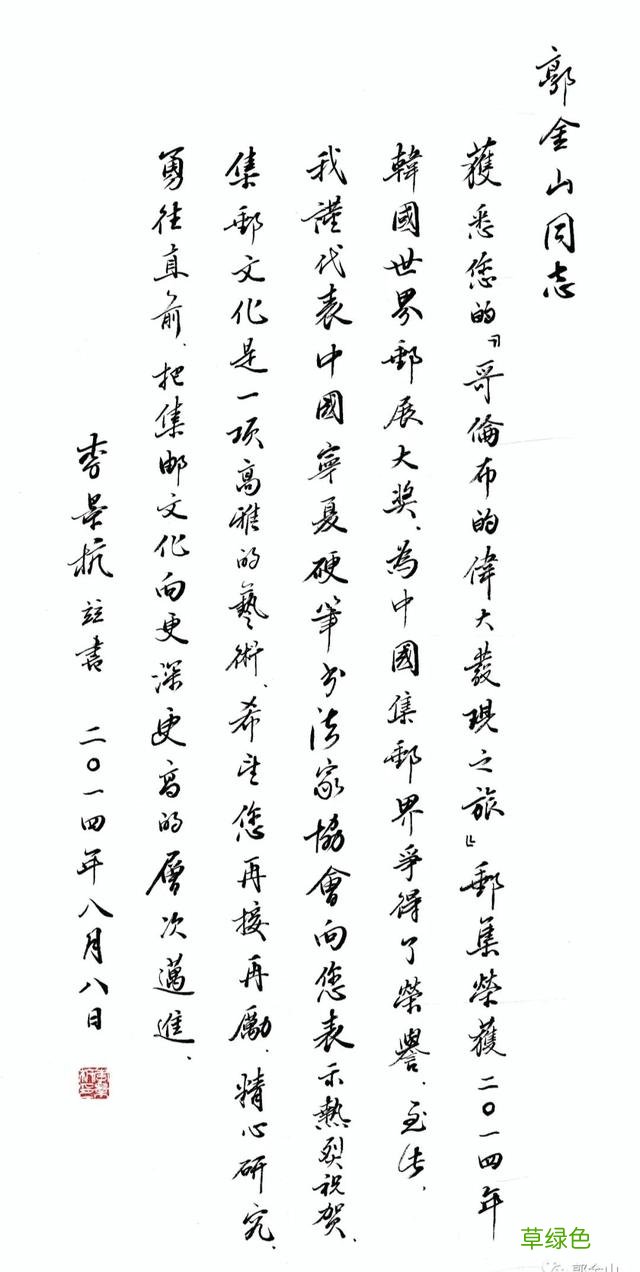 郭金山同志
獲悉您的『哥倫布的偉大發現之旅』郵集榮獲二〇一四年
韓國世界郵展大奖、為中國集郵界爭得了榮譽、至此、
我謹代表中國寧夏硬筆书法家協會向您表示熱烈祝贺、
集郵文化是一项高雅的藝術、希望您再接再勵、精心研究、
勇往直前、把集邮文化向更深更高的層次邁進、
李景杭 竝書 二〇一四年八月八日
草绿色